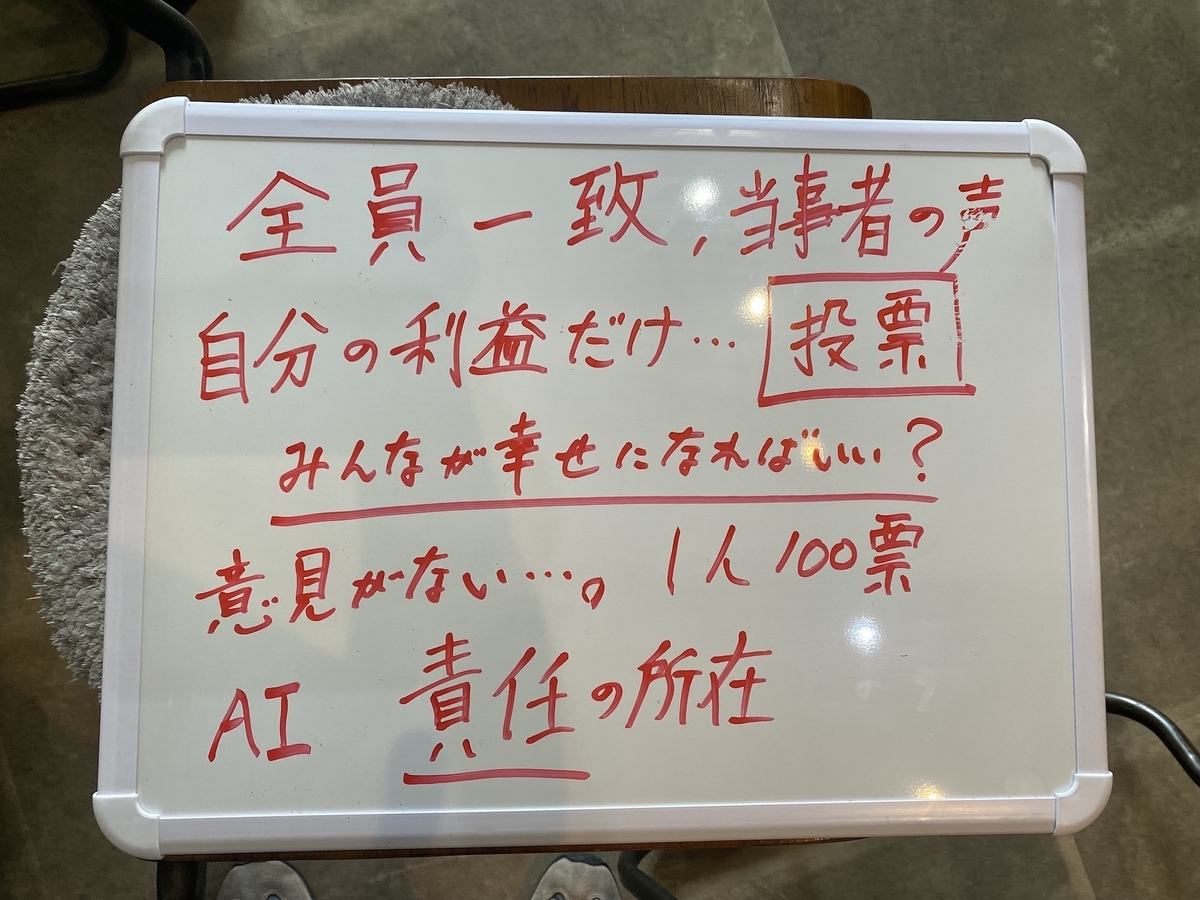 全員一致,当事者の声
自分の利益だけ… 投票
みんなが幸せになればいい…?
意見がない…。1人100票
AI 責任の所在